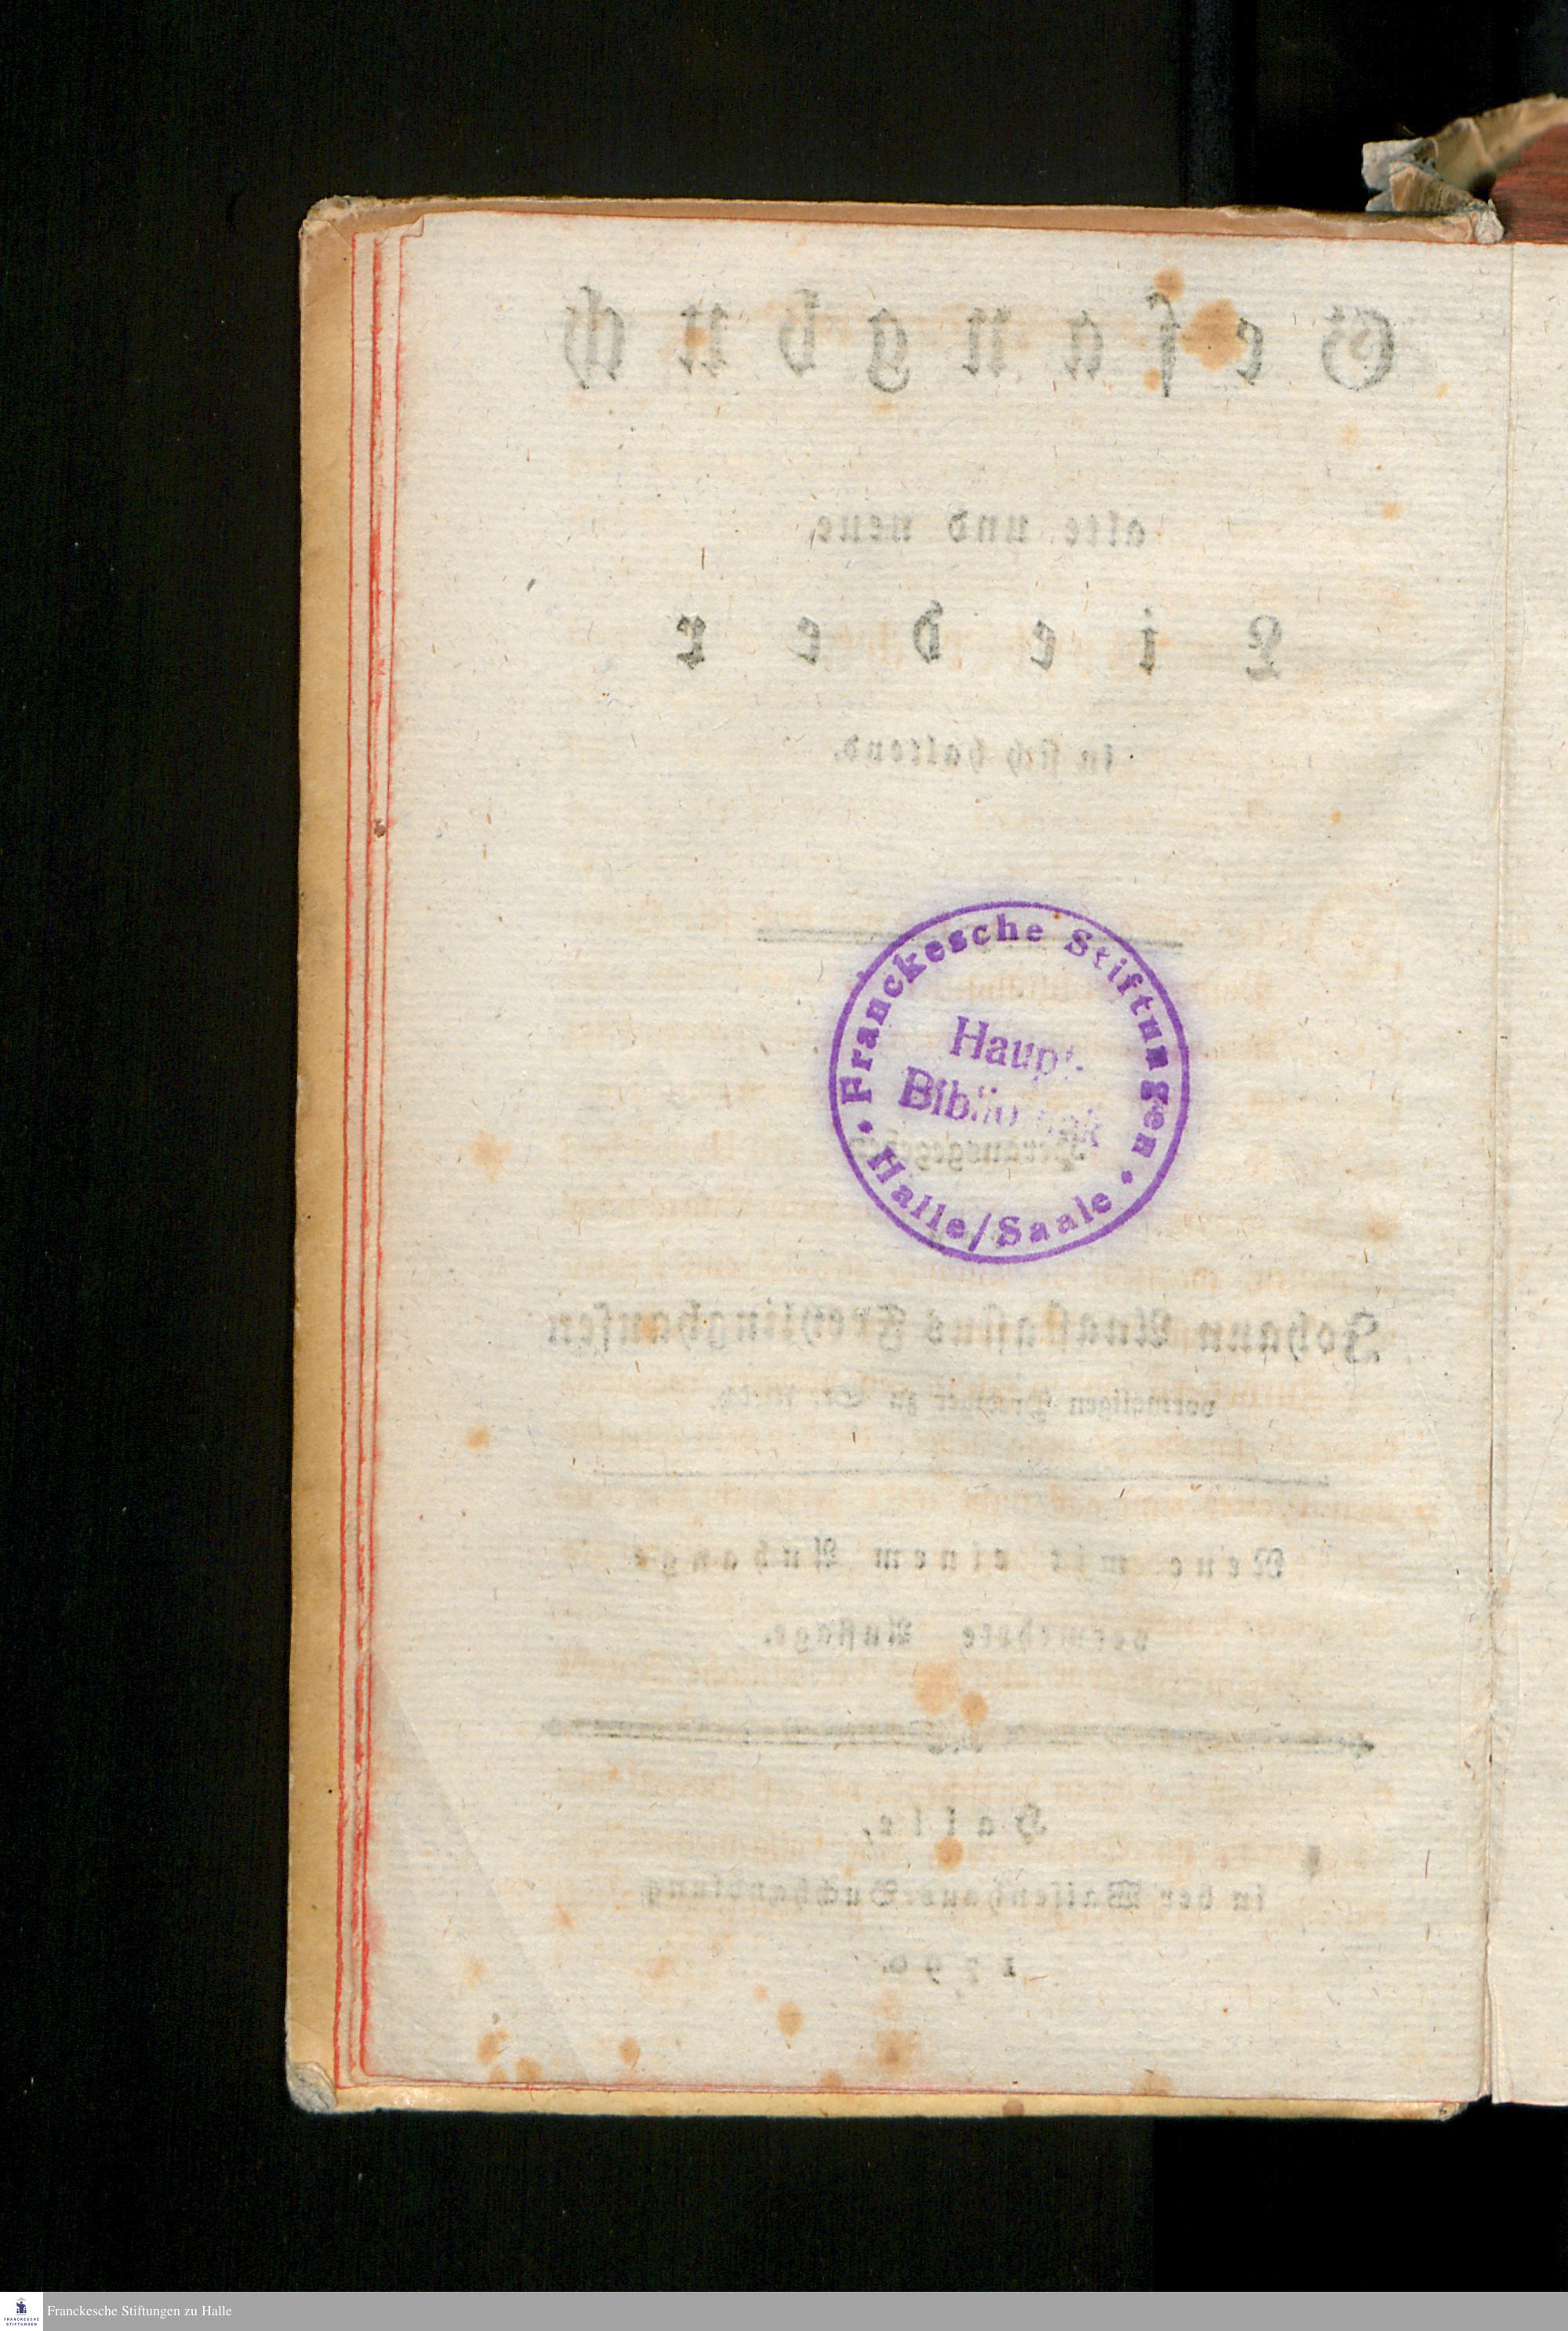 Gesangbuch
alte und neue
Lieder
in sich haltend.
Franckesche Stiftungen
Haupt-
Bibliothek
Halle/Saale
herausgegeben
Johann Anastasius Freylinghausen
vormaligen Prediger zu St. Ulrich.
Neue mit einem Anhange
vermehrte Auflage.
Halle,
in der Waisenhaus-Buchhandlung
1790.
FRANCKESCHE
STIFTUNGEN
Franckesche Stiftungen zu Halle